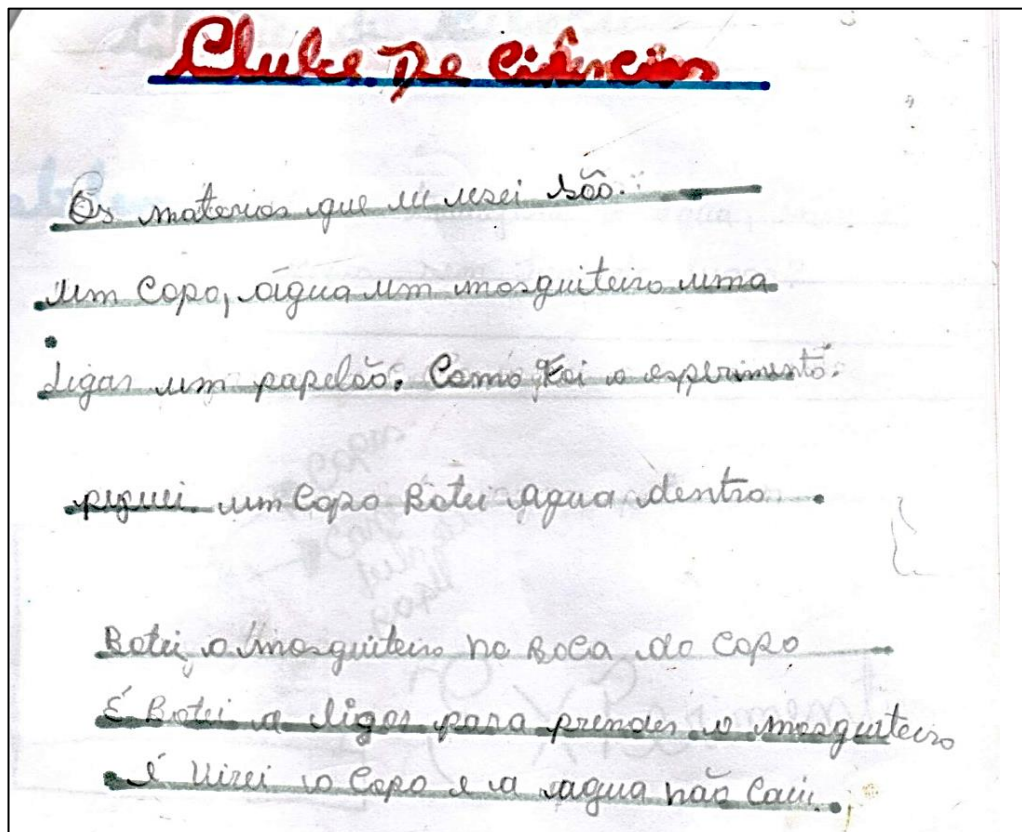 Clube De Ciências
Os materios que eu usei são.
um Copo, água um mosquiteiro uma
Ligar um papelão. Como Foi o experimento.
peguei um Copo Botei agua dentro.
Botei o mosquiteiro no Boca do Copo
É Botei a ligar para prender o mosquiteiro
é Virei o Copo e a agua não Caiu.